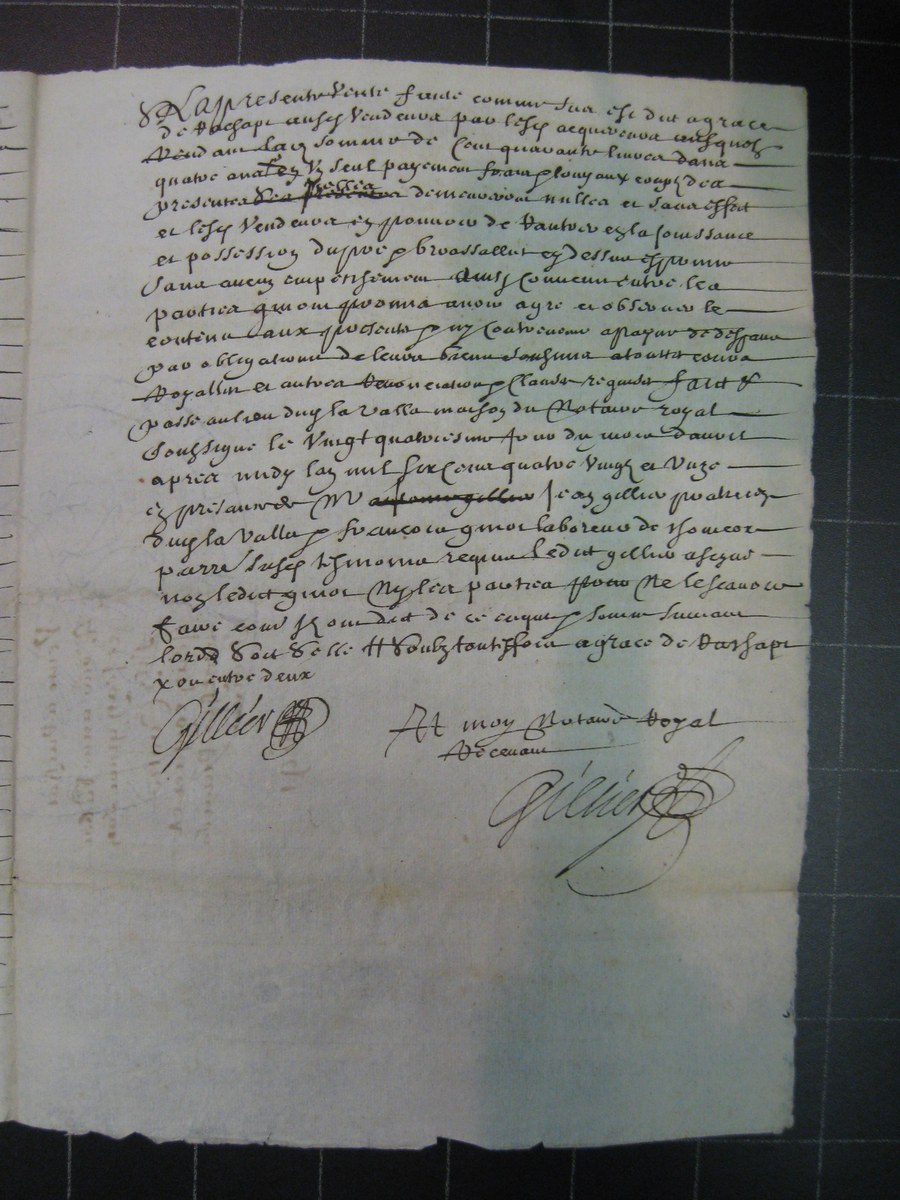 La presente vente faite comme sus est dit a grace
de Rachapt ausd Vendeurs par lesd acquereurs ausquels
Rendant lad somme de Cent quarante livres dans
quatre ans en Vng seul payement frais loyaux coupz des
presentes demeureront nulles et sans effect
et lesd Vendeurs en pouvoir de Rantrer en la Jouissance
et possession du pre broassallut cy dessus
sans aucun empechement Ainsy convenu entre les
parties quont promis avoir agre et observer le
contenu aux presents ny contrevenir a payne de despans
par obligations de leurs biens soubzmis a toutes cours
Royalles et autres Renonciations Clauses requises faict &
passe au lieu dud la Valla maison du Notaire royal
soubzsigne le Vingt quatriesme Jour du mois davril
apres midy lan mil six cent quatre Vingt et Unze
en presance de Mr Jean gillier praticien
dud la Valla francois laboreur de
parre susd tesmoins requis ledit gillier a signe
non ledict Ny les parties pour Ne le scavoir
faire comme Ils ont dict de ce enquis somme suivant
lord Soit Selle # Soubz toutesfois a grace de Rachapt
x ou entre deux
Gillier
Et moy Notaire Royal
Recevant
Gillier